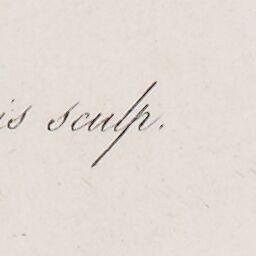 is sculp.